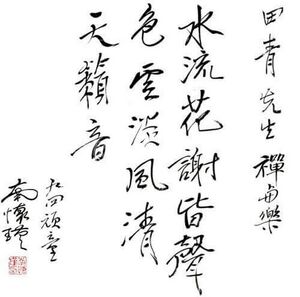 田青先生禪與樂
水流花謝皆聲
色雲淡風清
天籟音
九四頑童
南懷瑾